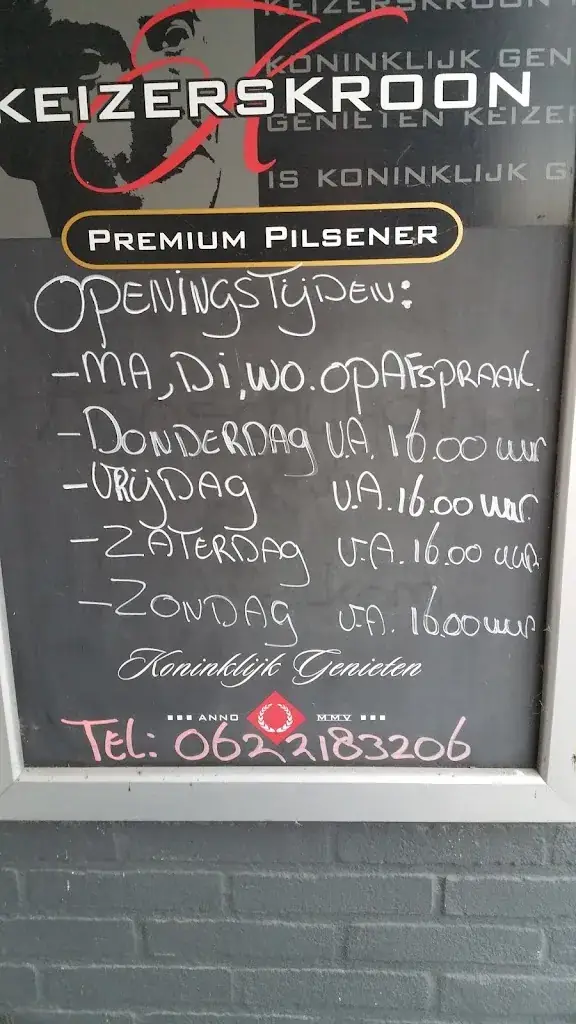 KEIZERSKROON
KONINKLIJK GEN
KEIZERSKROON
GENIETEN KEIZE
IS KONINKLIJK G
PREMIUM PILSENER
OPENINGSTIJDEN:
-MA, Di, WO. OP AFSPRAAK.
-DONDERDAG V.A. 16.00 uur
-VRIJDAG V.A. 16.00 uur.
-ZATERDAG V.A. 16.00 uur.
-ZONDAG V.A. 16.00 uur.
Koninklijk Genieten
ANNO MMV
TEL: 0622183206